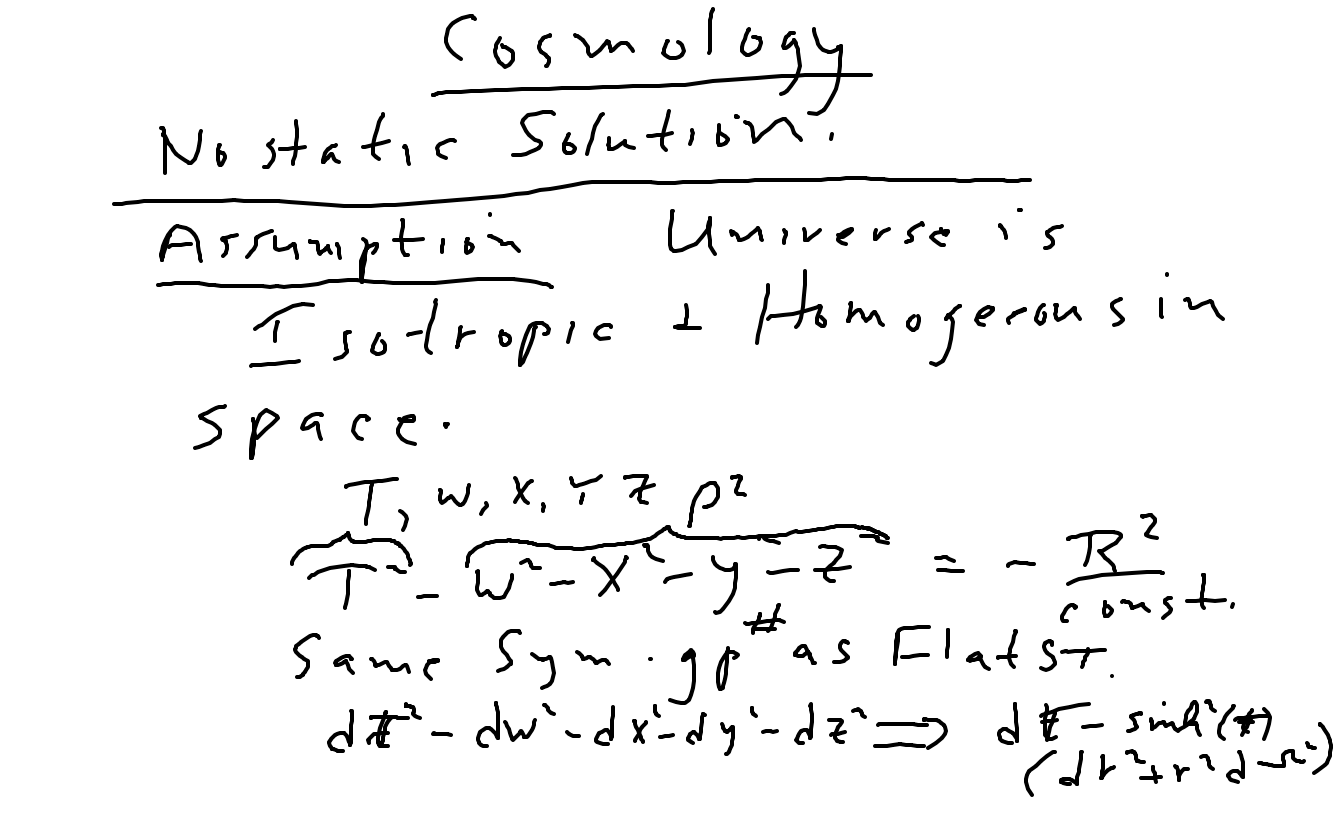 Cosmology
No static Solution.
Assumption Universe is
Isotropic + Homogerous in
space.
T, w, x, Y Z ρ²
T² - w² - x² - y² - z² = - R²
const.
Same Sym. gp # as Flat ST.
dt² - dw² - dx² - dy² - dz² ⟹ dt² - sinh²(t)
(dr² + r² dΩ²)